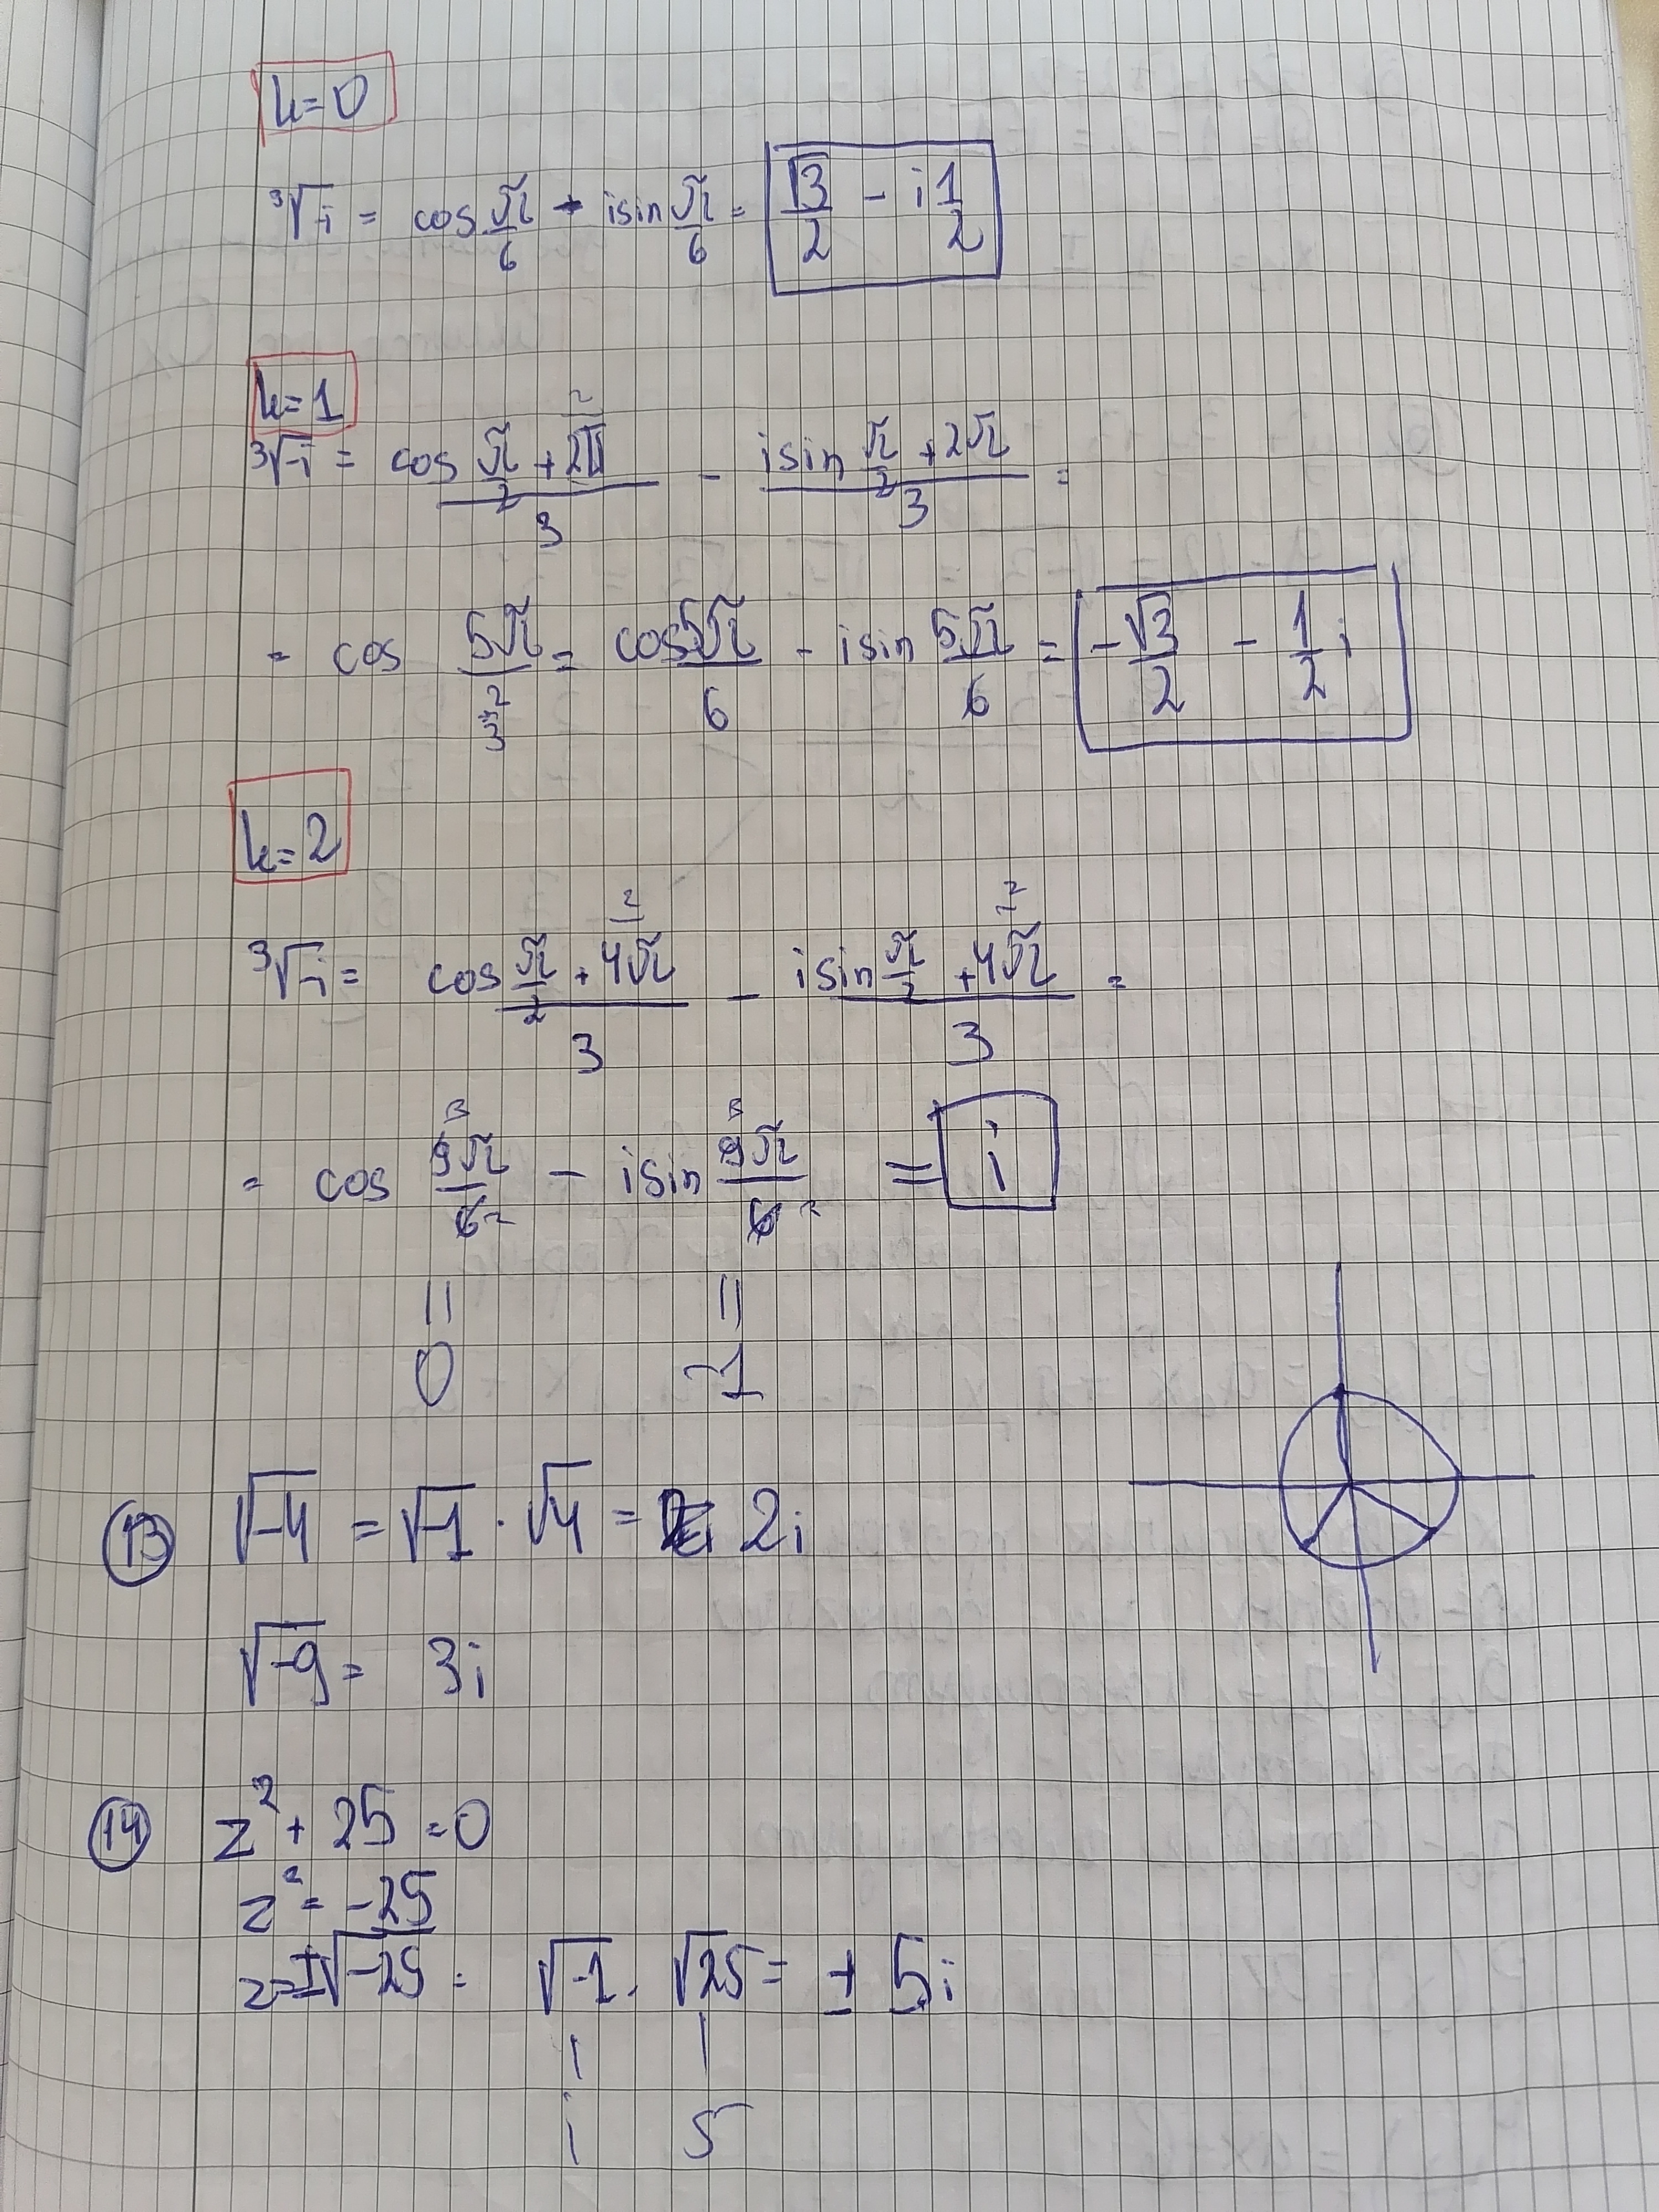 k=0
³√-i = cos π/6 - isin π/6 = √3/2 - i 1/2
k=1
³√-i = cos (π/2 + 2π)/3 - isin (π/2 + 2π)/3 =
= cos 5π/(3·2) = cos 5π/6 - isin 5π/6 = -√3/2 - 1/2 i
k=2
³√-i = cos (π/2 + 4π)/3 - isin (π/2 + 4π)/3 =
= cos 9π/6 - isin 9π/6 = i
3 2 3 2
|| ||
0 -1
13 √-4 = √-1 · √4 = 2i
√-9 = 3i
14 z² + 25 = 0
z² = -25
z = ±√-25 = √-1 · √25 = ± 5i
i 5